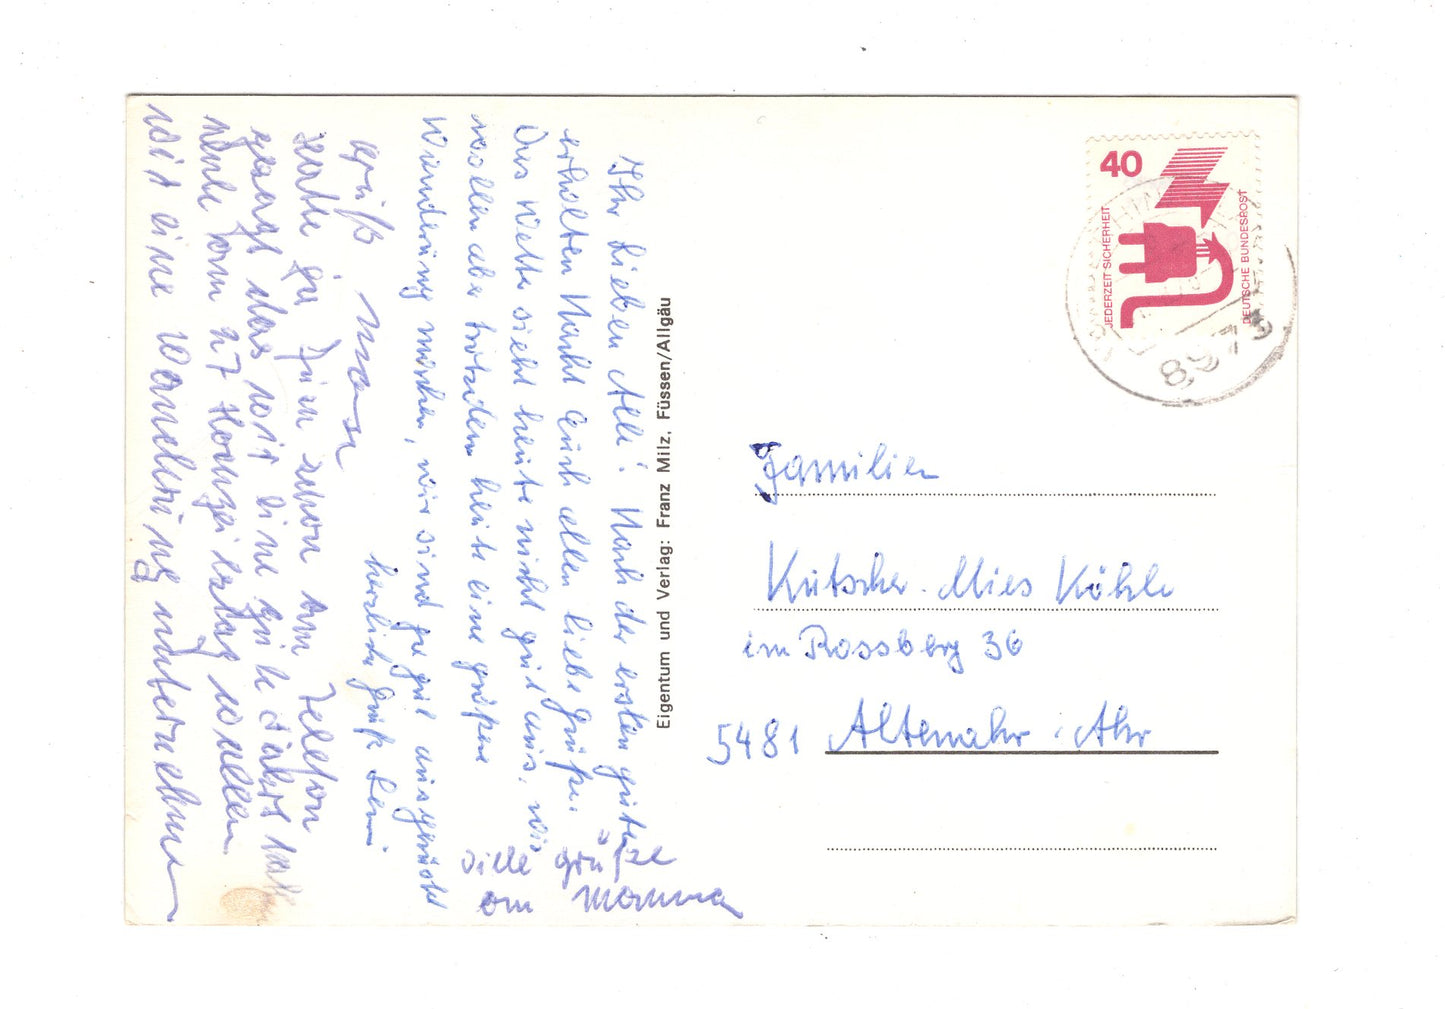 Ihr Lieben Alle! Nach der ersten gute
erholten Nacht Euch allen liebe Grüße.
Das Wetter sieht heute nicht gut aus, wir
wollen aber trotzdem heute eine größere
Wanderung machen, wir sind ja gut ausgeruht
herzliche Grüße Leni
Gruß
hatte ja schon am Telefon
gesagt das wir eine gute Fahrt
heute am 27 Hochzeitstag wollen
wir eine Wanderung unternehmen
viele grüße
an Mamma
Eigentum und Verlag: Franz Milz, Füssen/Allgäu
40
JEDERZEIT SICHERHEIT
DEUTSCHE BUNDESPOST
8973
Familien
Kutscher. Mies Köhle
im Rossberg 36
5481 Altenahr. Ahr